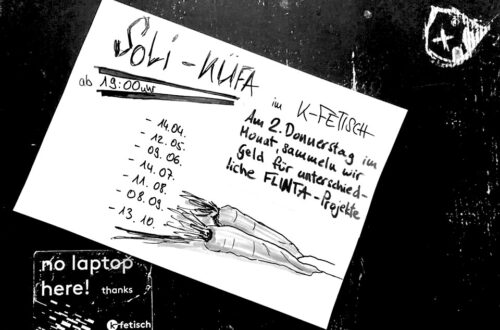 SOLI - KÜFA
ab 19:00 UHR
im K-FETISCH
Am 2. Donnerstag im
Monat, sammeln wir
Geld für unterschied-
liche FLINTA-Projekte
- 14.04.
- 12.05.
- 09.06.
- 14.07.
- 11.08.
- 08.09.
- 13.10.
no laptop
here! thanks
k-fetisch